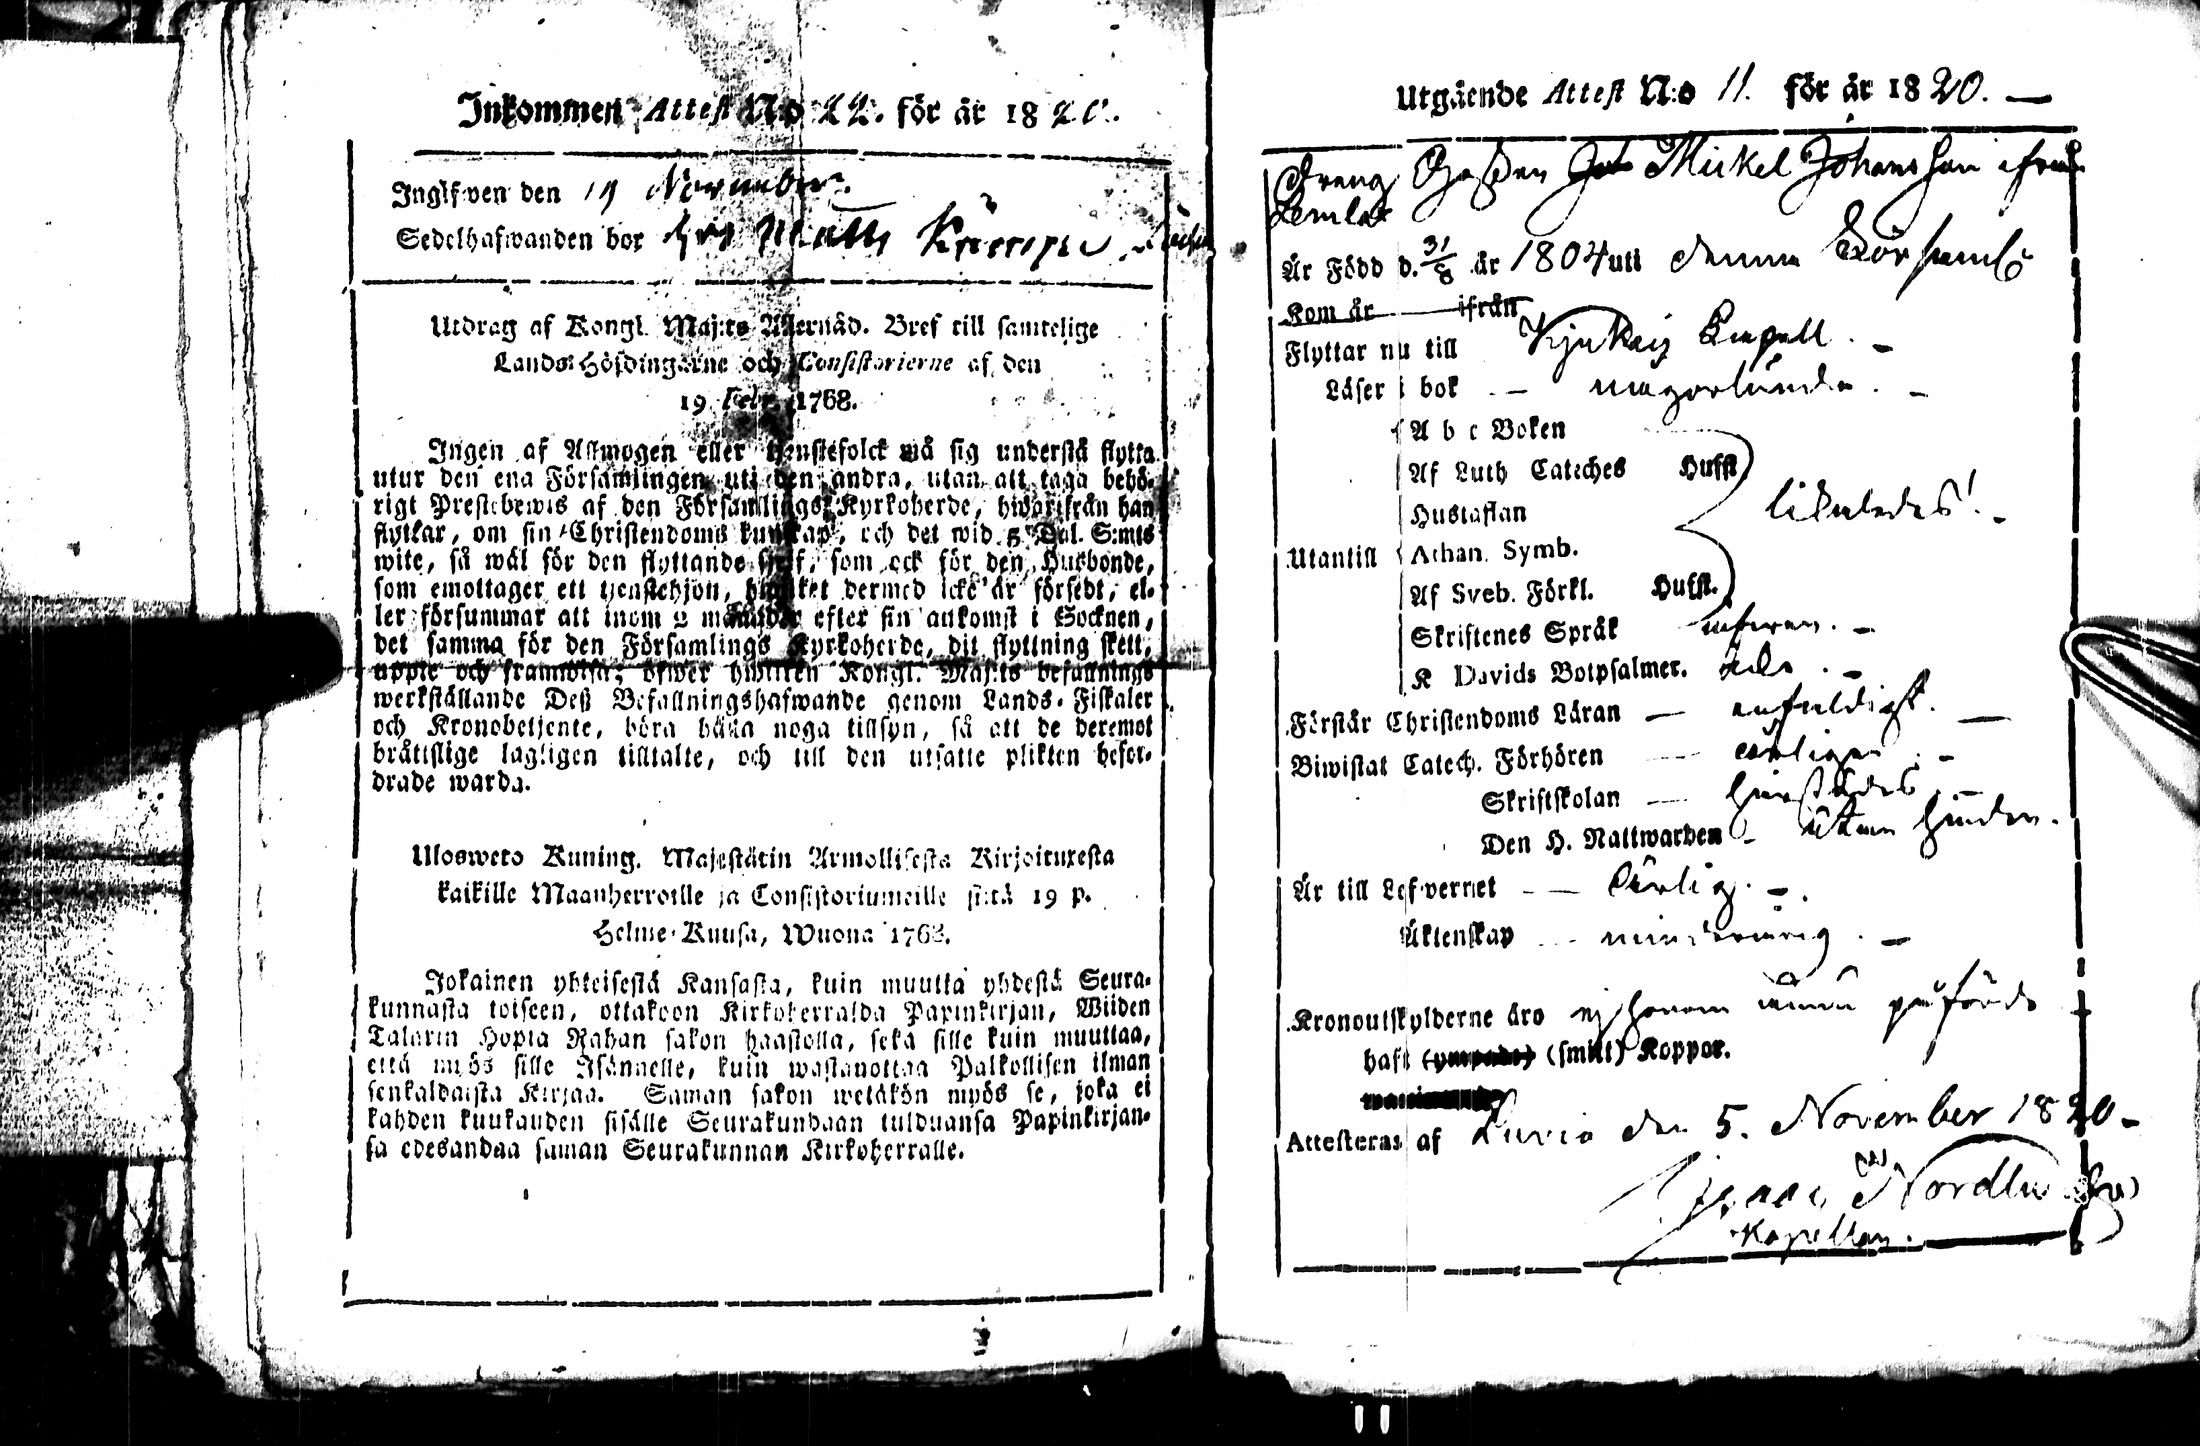 Inkommen Attest N:o 22. för år 1820.
Ingifwen den 19 November.
Sedelhafwanden bor hos Matts
Utdrag af Kongl. Maj:ts Allernåd. Bref till samtelige
Lands-Höfdingarne och Consistorierne af den
19 Febr. 1768.
Ingen af Allmogen eller tjenstefolck må sig understå flytta
utur den ena Församlingen uti den andra, utan att taga behö-
rigt Prestebewis af den Församlings Kyrkoherde, hwarifrån han
flyttar, om sin Christendoms kunskap, och det wid 5 Dal. S:mts
wite, så wäl för den flyttande sjelf, som ock för den Husbonde,
som emottager ett tjenstehjon, hwilket dermed icke är försedt, el-
ler försummar att inom 2 månader efter sin ankomst i Socknen,
det samma för den Församlings Kyrkoherde, dit flyttning skett,
uppte och framwisa; öfwer hwilken Kongl. Maj:ts befallnings
werkställande Deß Befallningshafwande genom Lands-Fiskaler
och Kronobetjente, böra hålla noga tillsyn, så att de deremot
bråttslige lagligen tilltalte, och till den utsatte plikten befor-
drade warda.
Ulosweto Kuning. Majestätin Armollisesta Kirjoituxesta
kaikille Maanherroille ja Consistoriumeille siitä 19 p.
Helme-Kuusa, Wuona 1768.
Jokainen yhteisestä Kansasta, kuin muutta yhdestä Seura-
kunnasta toiseen, ottakoon Kirkoherralda Papinkirjan, Wiiden
Talarin Hopia Rahan sakon haastolla, sekä sille kuin muuttaa,
että myös sille Isännelle, kuin wastanottaa Palkollisen ilman
senkaldaista Kirjaa. Saman sakon wetäkön myös se, joka ei
kahden kuukauden sisälle Seurakundaan tulduansa Papinkirjan-
sa edesandaa saman Seurakunnan Kirkoherralle.
Utgående Attest N:o 11. för år 1820.
Dreng Goßen Mickel Johansson ifrån
Är Född d. 31/8 år 1804 uti denna Församl
Kom år ifrån
Flyttar nu till Kjukais Capell.
Läser i bok någorlunda.
A b c Boken
Af Luth Cateches Hufst
Hustaflan
likaledes!
Utantill Athan. Symb.
Af Sveb. Förkl. Hufst.
Skriftenes Språk
K Davids Botpsalmer.
Förstår Christendoms Läran enfaldigt.
Biwistat Catech. Förhören årligen.
Skriftskolan härstädes.
Den H. Nattwarden utan hinder.
Är till Lefwernet ärlig.
Äktenskap minderårig.
Kronoutskylderne äro ej honom ännu påförde
haft (ympade) (smitt) Koppor.
Attesteras af Luvia den 5. November 1820
Isaac Nordlund
Kapellan.